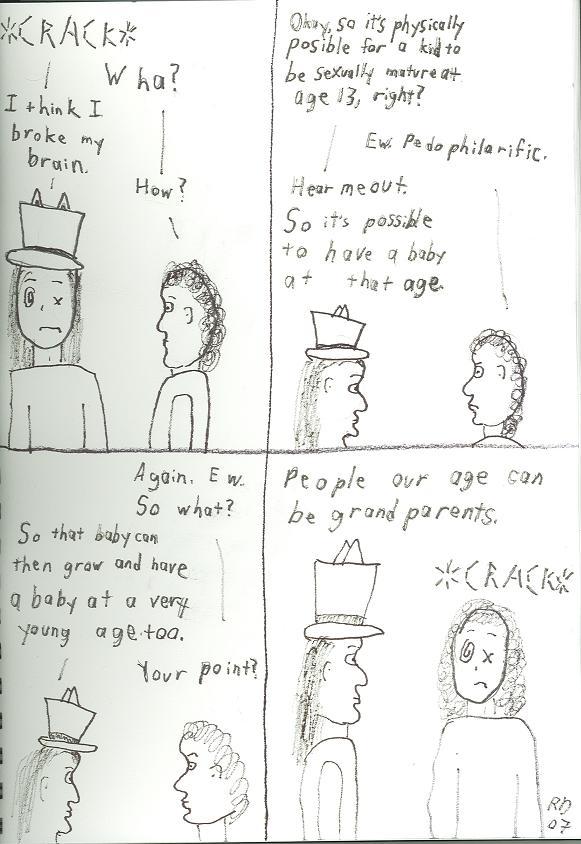 *CRACK*
Wha?
I think I
broke my
brain.
How?
Okay, so it's physically
posible for a kid to
be sexually mature at
age 13, right?
Ew. Pedophilarific.
Hear me out.
So it's possible
to have a baby
at that age.
Again. Ew.
So what?
So that baby can
then grow and have
a baby at a very
young age too.
Your point?
People our age can
be grandparents.
*CRACK*
RD
07